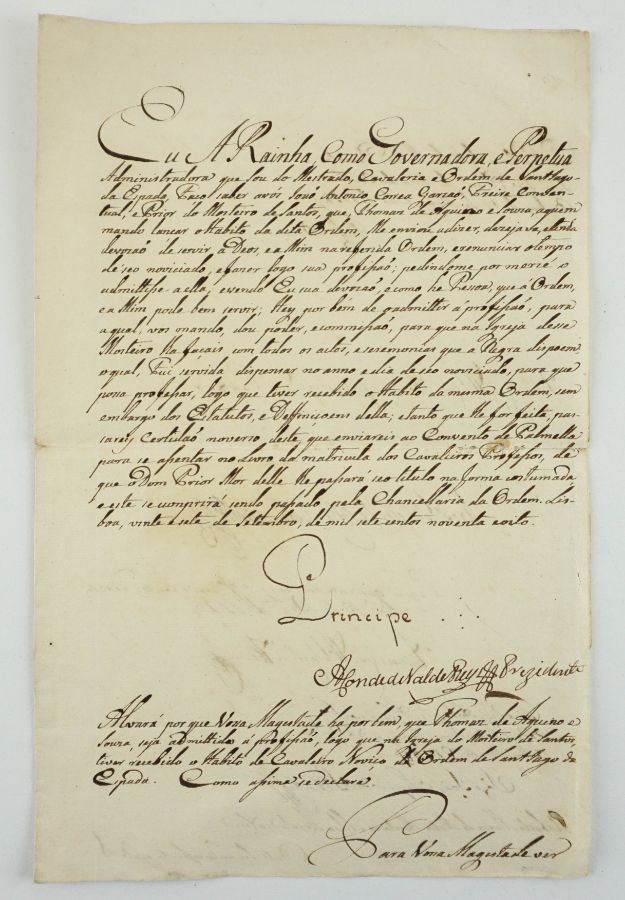 Eu A Rainha, Como Governadora, e Perpetua
Administradora que sou do Mestrado, Cavalaria e Ordem de SantIago
da Espada, Faço saber avós José Antonio Correa Garçaõ, Freire Conven-
tual, e Prior do Mosteiro de Santos, que, Thomaz de Aquino e Souza, aquem
mando lançar o Habito da dita Ordem, Me enviou adizer, dezejava,
devoçaõ de servir, a Deos, e a Mim na referida Ordem, e renunciar o tempo
de seo noviciado, e fazer logo sua profissaõ; pedindome por mercê o
admittisse a ella, e vendo Eu sua devoçaõ, e como he Pessoa, que a Ordem,
e a Mim pode bem servir; Hey por bem de o admittir á profissaõ, para
a qual, vos mando, dou poder, e commissaõ, para que na Igreja desse
Mosteiro lha façais com todos os actos, e ceremonias que a Regra dispoem,
o qual, Fui servida dispensar no anno e dia de seo noviciado, para que
possa professar, logo que tiver recebido o Habito da mesma Ordem, sem
embargo dos Estatutos, e Deffiniçoens della; e tanto que lhe for feita, pas-
sareis Certidaõ no verso deste, que enviareis ao Convento de Palmella
para se assentar no Livro da matricula dos Cavaleiros Professos, de
que o Dom Prior Mor delle lhe passará seo titulo na forma costumada
e este se comprirá sendo passado pela Chancellaria da Ordem. Lis-
boa, vinte e sete de Setembro, de mil sete centos noventa e oito.
Principe
Conde de Val de Reys Prezidente
Alvará por que Vossa Magestade ha por bem, que Thomaz de Aquino e
Souza, seja admittido á profissaõ, logo que na Igreja do Mosteiro de Santos,
tiver recebido o Habito de Cavaleiro Noviço da Ordem de SantIago da
Espada. Como assima se declara
Para Vossa Magestade ver